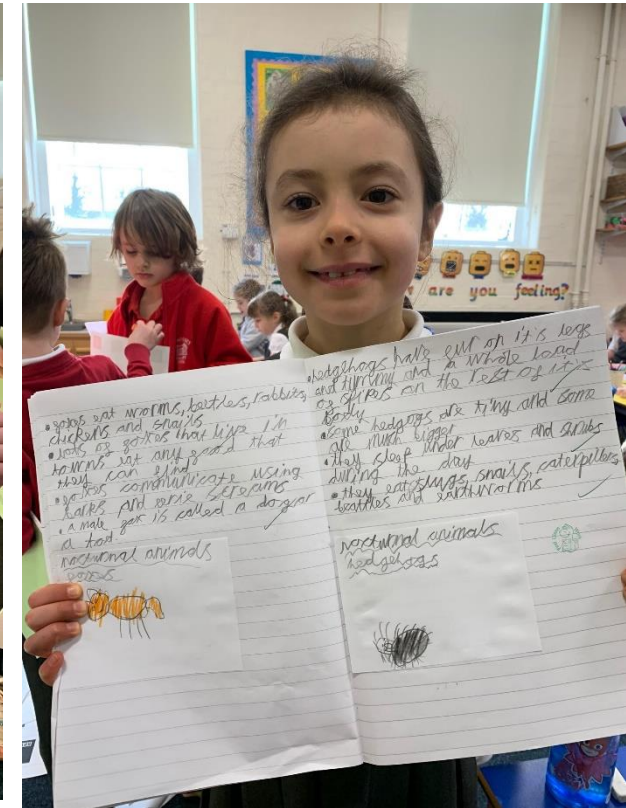 are you feeling?
• foxes eat worms, beetles, rabbits,
chickens and snails
• lots of foxes that live in
towns eat any food that
they can find
• foxes communicate using
barks and eerie screams
• a male fox is called a dog or
a tod.
nocturnal animals
foxes
• hedgehogs have fur on it's legs
and tummy and a whole load
of spikes on the rest of it's
body
• some hedgogs are tiny and some
are much bigger
• they sleep under leaves and shrubs
during the day
• they eat slugs, snails, caterpillers
beattles and earthworms
nocturnal animals
hedgehogs